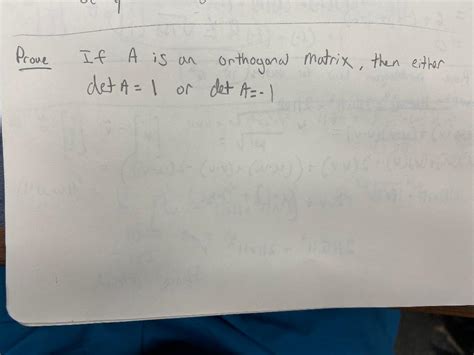 Prove If A is an orthogonal matrix, then either
det A = 1 or det A = -1